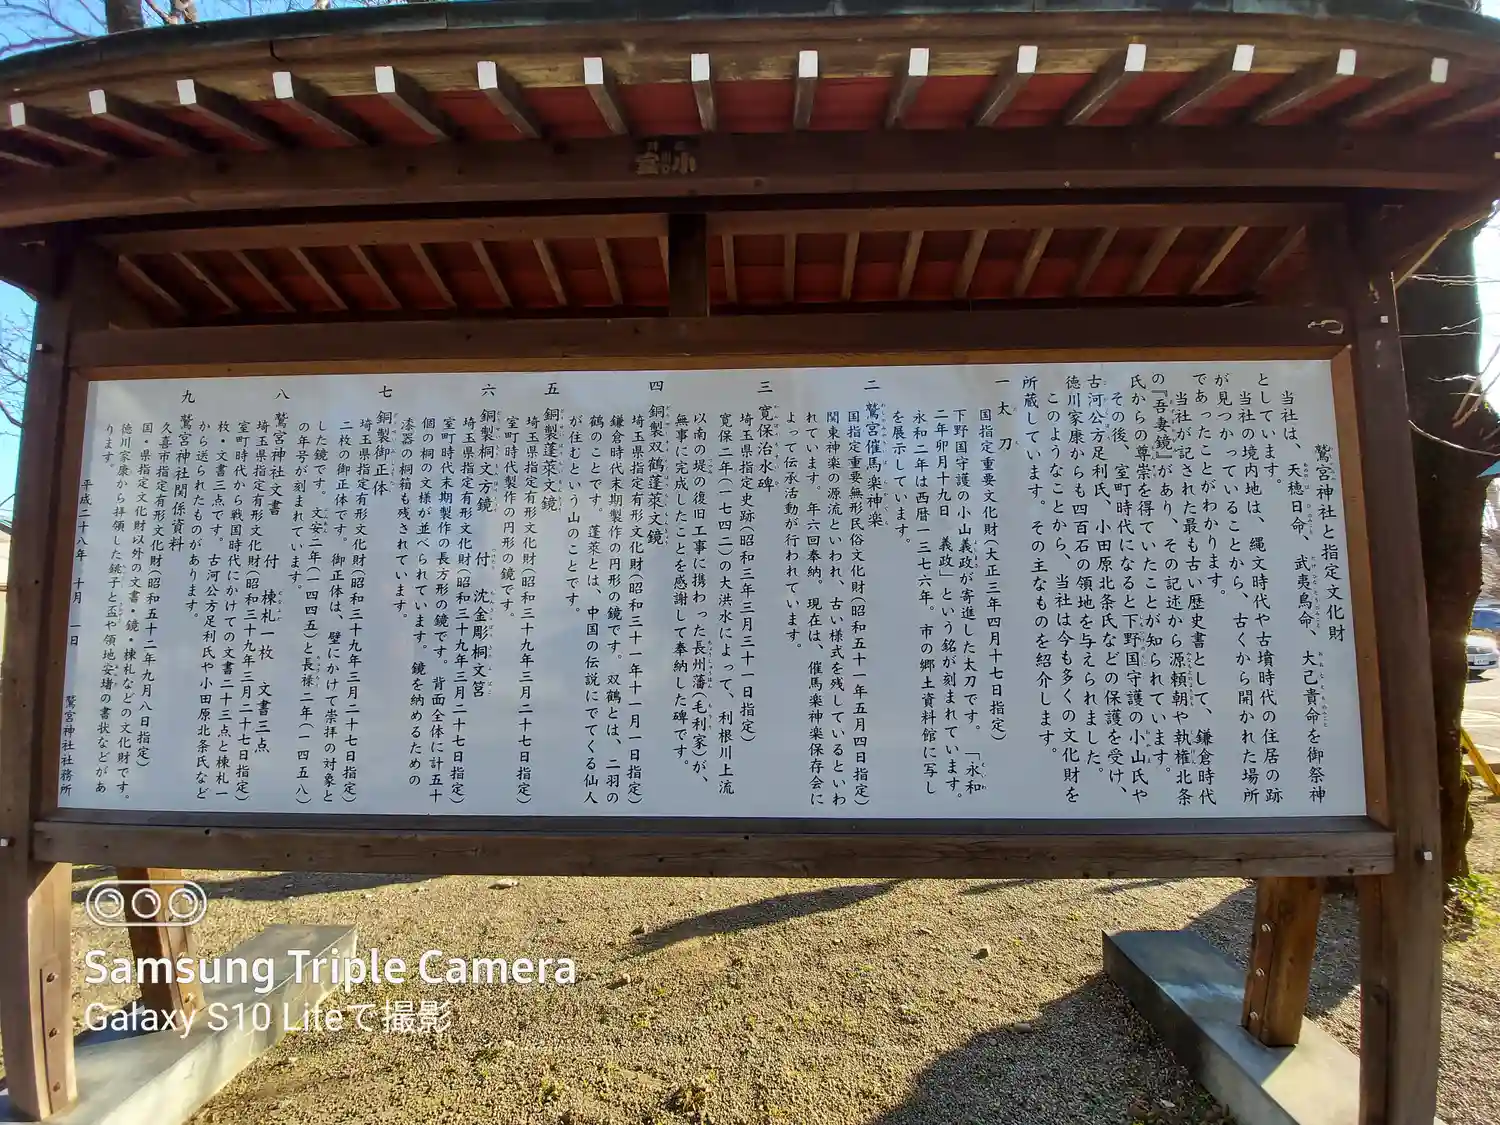 鷲宮神社と指定文化財
当社は、天穂日命、武夷鳥命、大己貴命を御祭神
としています。
当社の境内地は、縄文時代や古墳時代の住居の跡
が見つかっていることから、古くから開かれた場所
であったことがわかります。
当社が記された最も古い歴史書として、鎌倉時代
の『吾妻鏡』があり、その記述から源頼朝や執権北条
氏からの尊崇を得ていたことが知られています。
その後、室町時代になると下野国守護の小山氏や
古河公方足利氏、小田原北条氏などの保護を受け、
徳川家康からも四百石の領地を与えられました。
このようなことから、当社は今も多くの文化財を
所蔵しています。その主なものを紹介します。
一 太刀
国指定重要文化財(大正三年四月十七日指定)
下野国守護の小山義政が寄進した太刀です。「永和
二年卯月十九日 義政」という銘が刻まれています。
永和二年は西暦一三七六年。市の郷土資料館に写し
を展示しています。
二 鷲宮催馬楽神楽
国指定重要無形民俗文化財(昭和五十一年五月四日指定)
関東神楽の源流といわれ、古い様式を残しているといわ
れています。年六回奉納。現在は、催馬楽神楽保存会に
よって伝承活動が行われています。
三 寛保治水碑
埼玉県指定史跡(昭和三年三月三十一日指定)
寛保二年(一七四二)の大洪水によって、利根川上流
以南の堤の復旧工事に携わった長州藩(毛利家)が、
無事に完成したことを感謝して奉納した碑です。
四 銅製双鶴蓬莱文鏡
埼玉県指定有形文化財(昭和三十一年十一月一日指定)
鎌倉時代末期製作の円形の鏡です。双鶴とは、二羽の
鶴のことです。蓬莱とは、中国の伝説にでてくる仙人
が住むという山のことです。
五 銅製蓬莱文鏡
埼玉県指定有形文化財(昭和三十九年三月二十七日指定)
室町時代製作の円形の鏡です。
六 銅製桐文方鏡 付 沈金彫桐文筥
埼玉県指定有形文化財(昭和三十九年三月二十七日指定)
室町時代末期製作の長方形の鏡です。背面全体に計五十
個の桐の文様が並べられています。鏡を納めるための
漆器の桐箱も残されています。
七 銅製御正体
埼玉県指定有形文化財(昭和三十九年三月二十七日指定)
二枚の御正体です。御正体は、壁にかけて崇拝の対象と
した鏡です。文安二年(一四四五)と長禄二年(一四五八)
の年号が刻まれています。
八 鷲宮神社文書 付 棟札一枚 文書三点
埼玉県指定有形文化財(昭和三十九年三月二十七日指定)
室町時代から戦国時代にかけての文書二十三点と棟札一
枚・文書三点です。古河公方足利氏や小田原北条氏など
から送られたものがあります。
九 鷲宮神社関係資料
久喜市指定有形文化財(昭和五十二年九月八日指定)
国・県指定文化財以外の文書・鏡・棟札などの文化財です。
徳川家康から拝領した銚子と盃や領地安堵の書状などがあ
ります。
平成二十八年 十月 一日
鷲宮神社社務所
Samsung Triple Camera
Galaxy S10 Liteで撮影